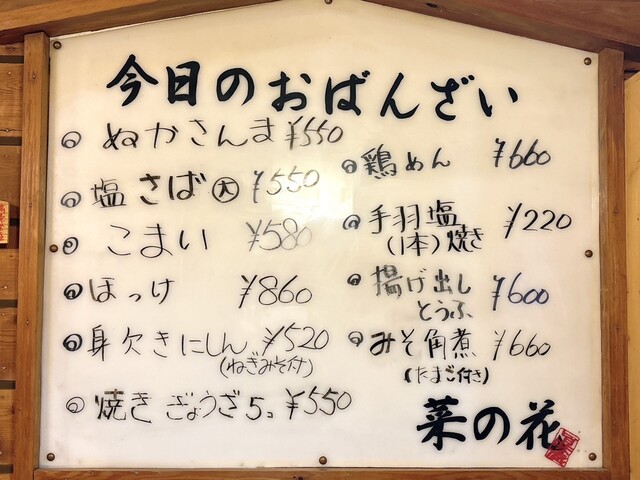 今日のおばんざい
ぬかさんま ¥550
塩さば 大 ¥550
こまい ¥580
ほっけ ¥860
身欠きにしん ¥520
(ねぎみそ付)
焼きぎょうざ5コ ¥550
鶏めん ¥660
手羽塩 ¥220
(1本)焼き
揚げ出し ¥600
とうふ
みそ角煮 ¥660
(たまご付き)
菜の花